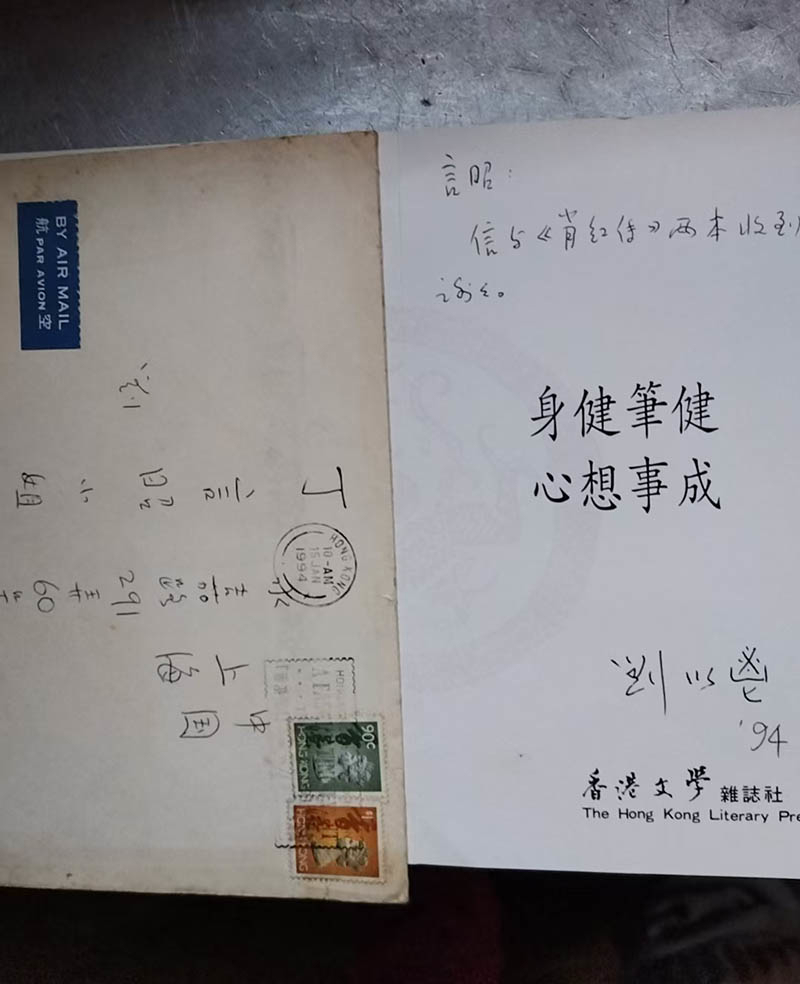 BY AIR MAIL
航 PAR AVION 空
中国
上海
永嘉路291弄60
丁言昭小姐
HONG KONG
10-AM
15 JAN
1994
90c
HONG KONG
HONG KONG
言昭：
信与《肖红传》两本收到
谢谢。
身健筆健
心想事成
劉以鬯
'94
香港文學 雜誌社
The Hong Kong Literary Pre